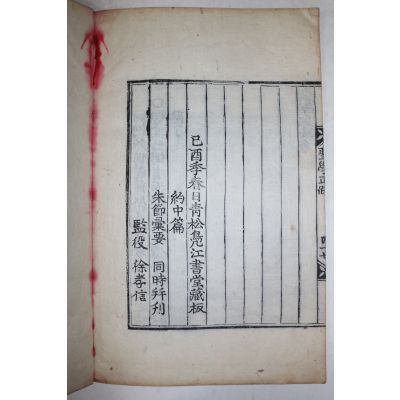 己酉季春日靑松鳧江書堂藏板
約中篇
朱節彙要 同時幷刋
監役 徐孝信